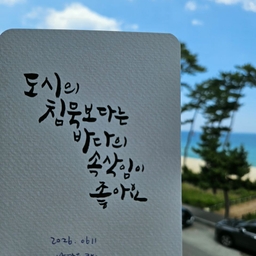 도시의
침묵보다는
바다의
속삭임이
좋아요
2026. 0611